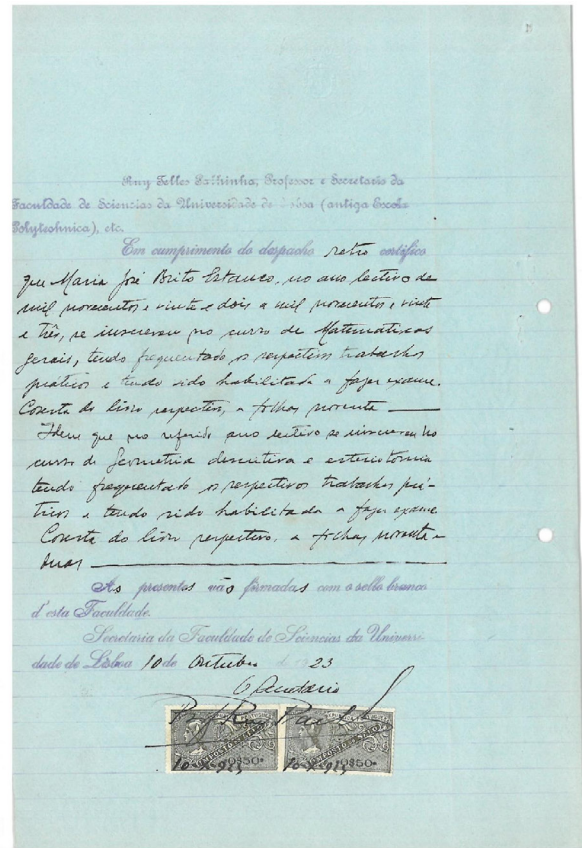 Ruy Telles Palhinha, Professor e Secretario da
Faculdade de Sciencias da Universidade de Lisboa (antiga Escola
Polytechnica), etc.
Em cumprimento do despacho retro certifico
que Maria José Brito Estanco, no ano lectivo de
mil novecentos e vinte e dois a mil novecentos e vinte
e três, se inscreveu no curso de Matematicas
gerais, tendo frequentado os respectivos trabalhos
práticos e tendo sido habilitada a fazer exame.
Consta do livro respectivo, a folhas noventa
Idem que no referido ano lectivo se inscreveu no
curso de Geometria descritiva e estereotomia
tendo frequentado os respectivos trabalhos prá-
ticos e tendo sido habilitada a fazer exame
Consta do livro respectivo, a folhas noventa e
duas
As presentes vão firmadas com o sello branco
d'esta Faculdade.
Secretaria da Faculdade de Sciencias da Universi-
dade de Lisboa 10 de Outubro de 1923
O Secretario
IMPOSTO DO SELO IMPOSTO DO SELO
10-X-923 0$50 10-X-923 0$50